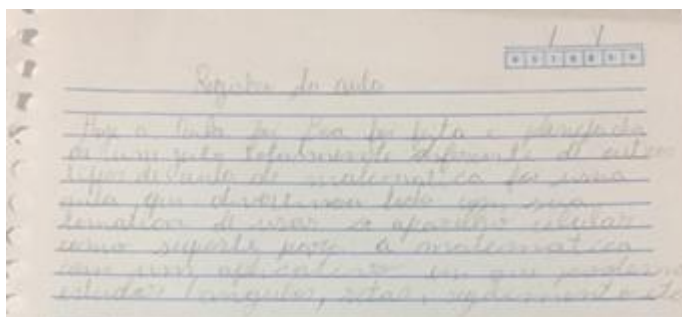 Registro da aula
Hoje a aula foi boa foi feita e planejada
de um jeito totalmente diferente de outros
tipos de aula de matemática foi uma
aula que com sua
temática de usar o aparelho celular
como suporte para a matemática
com um aplicativo em que podemos
estudar ângulos, retas, segmento etc